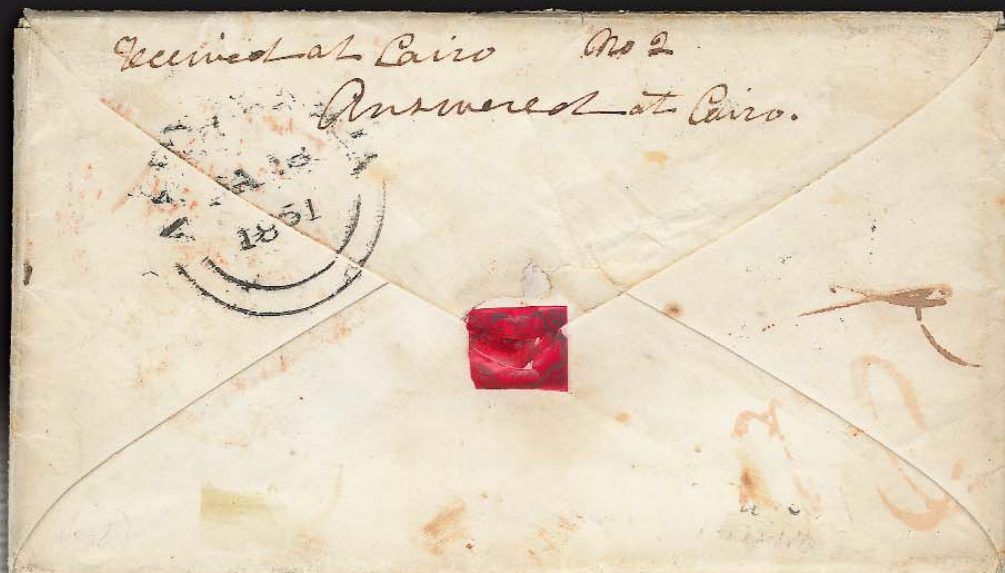 Received at Cairo No 2
Answered at Cairo.
1851